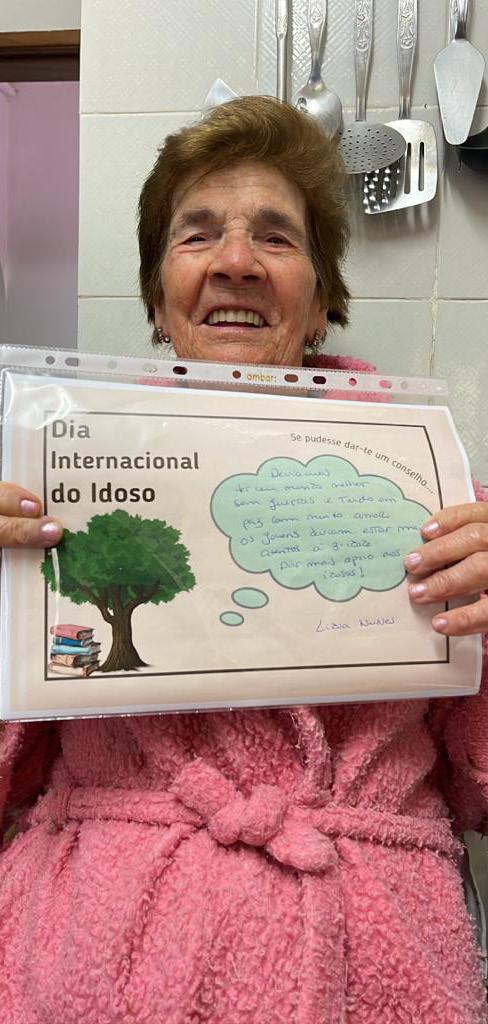 ambar:
Dia
Internacional
do Idoso
Se pudesse dar-te um conselho...
Deviamos
ter um mundo melhor
sem guerras e Tudo em
paz com muito amor
os jovens deviam estar mais
atentos à 3-idade
Dar mais apoio aos
idosos!
Lidia Nunes